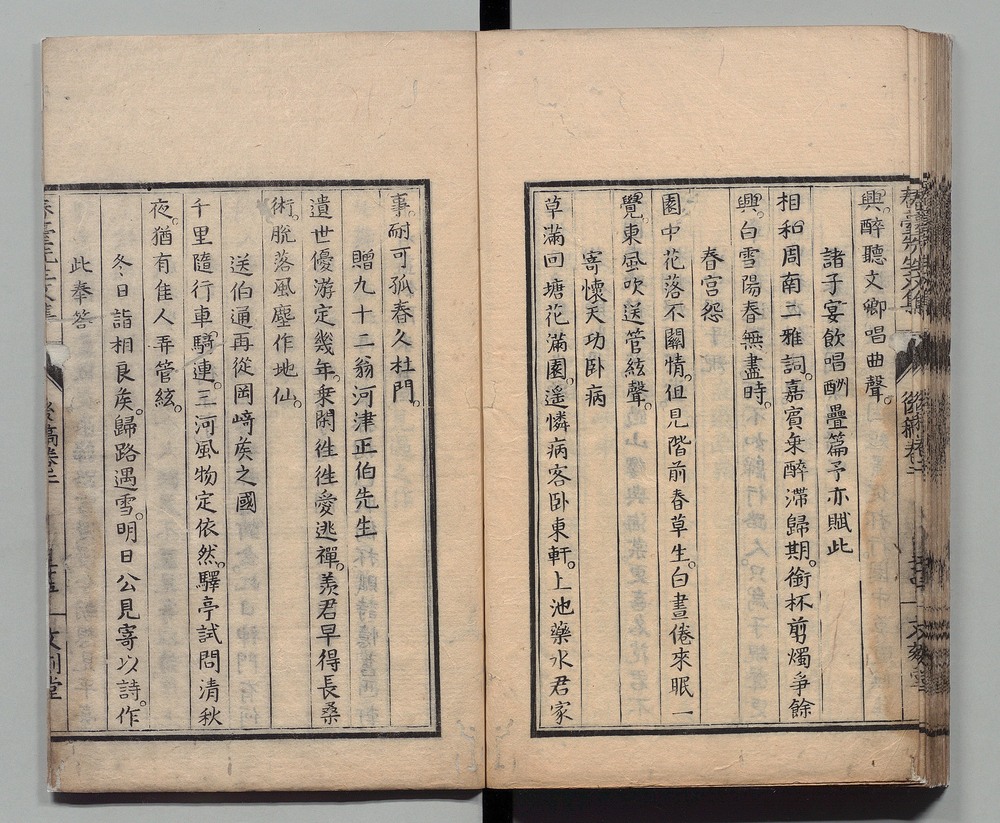 興。醉聽文卿唱曲聲。
諸子宴飲唱酬疊篇予亦賦此
相和周南二雅詞。嘉賓乗醉滞歸期。銜杯剪燭爭餘
興。白雪陽春無盡時。
春宮怨
園中花落不關情。但見階前春草生。白晝倦來眠一
覺。東風吹送管絃聲。
寄懷天功卧病
草滿回塘花滿園。遥憐病客卧東軒。上池藥水君家
事。耐可孤春久杜門。
贈九十二翁河津正伯先生
遺世優游定幾年。乗閑徃徃愛逃禪。羨君早得長桑
術。脫落風塵作地仙。
送伯通再從岡﨑矦之國
千里隨行車騎連。三河風物定依然。驛亭試問清秋
夜。猶有佳人弄管絃。
冬日詣相良矦。歸路遇雪。明日公見寄以詩。作
此奉答
後稿卷二